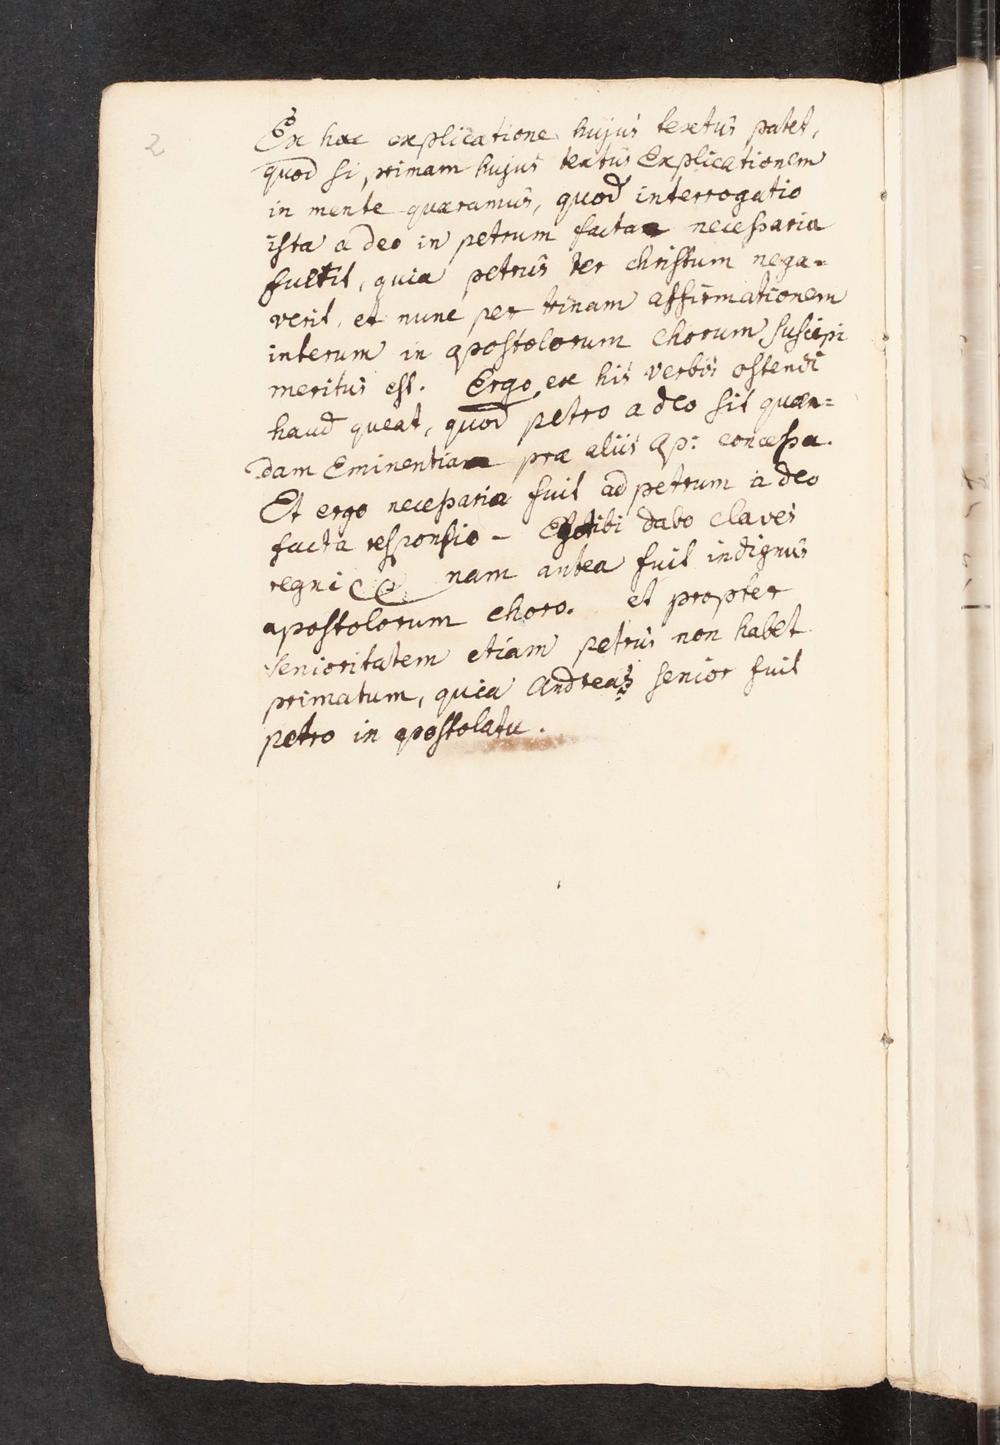 2
Ex hac explicatione hujus textus patet,
quod si, primam hujus textus Explicationem
in mente quæramus, quod interrogatio
ista a deo in petrum facta necessaria
fuit, quia petrus ter christum nega=
verit, et nunc per trinam affirmationem
interum in apostolorum chorum suscipi
meritus est. Ergo ex his verbis ostendi
haud queat, quod petro a deo sit quæn=
dam Eminentia præ aliis ap: concessa.
Et ergo necessaria fuit ad petrum a deo
facta responsio – tibi dabo claves
regni nam antea fuit indignus
apostolorum choro. et propter
senioritatem etiam petrus non habet
primatum, quia Andreas senior fuit
petro in apostolatu.